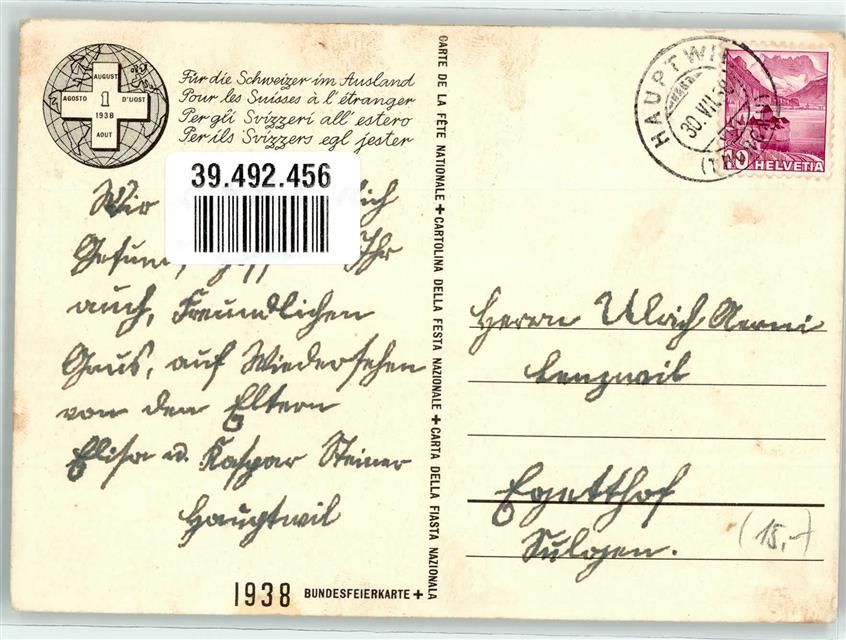 AUGUST
AGOSTO 1 D'UOST
1938
AOUT
Für die Schweizer im Ausland
Pour les Suisses à l'étranger
Per gli Svizzeri all' estero
Per ils Svizzers egl jester
39.492.456
Wir
auch, Freundlichen
Grus, auf Wiedersehen
von den Eltern
Elisa u. Kaspar Steiner
Hauptwil
1938 BUNDESFEIERKARTE +
CARTE DE LA FÊTE NATIONALE + CARTOLINA DELLA FESTA NAZIONALE + CARTA DELLA FIASTA NAZIONALA
HAUPTWIL
30.VII.
(THURGAU)
10 HELVETIA
Herrn Ulrich Aerni
Lenzwil
Egetthof
Sulgen.
(15,-)